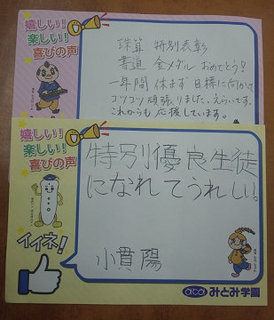 嬉しい!
楽しい!
喜びの声
珠算 特別表彰
書道 金メダル おめでとう!
一年間 休まず 目標に向かって
コツコツ頑張りました。えらいです。
これからも応援しています。
嬉しい!
楽しい!
喜びの声
イイネ!
特別優良生徒
になれてうれしい。
小貫陽
みとみ学園